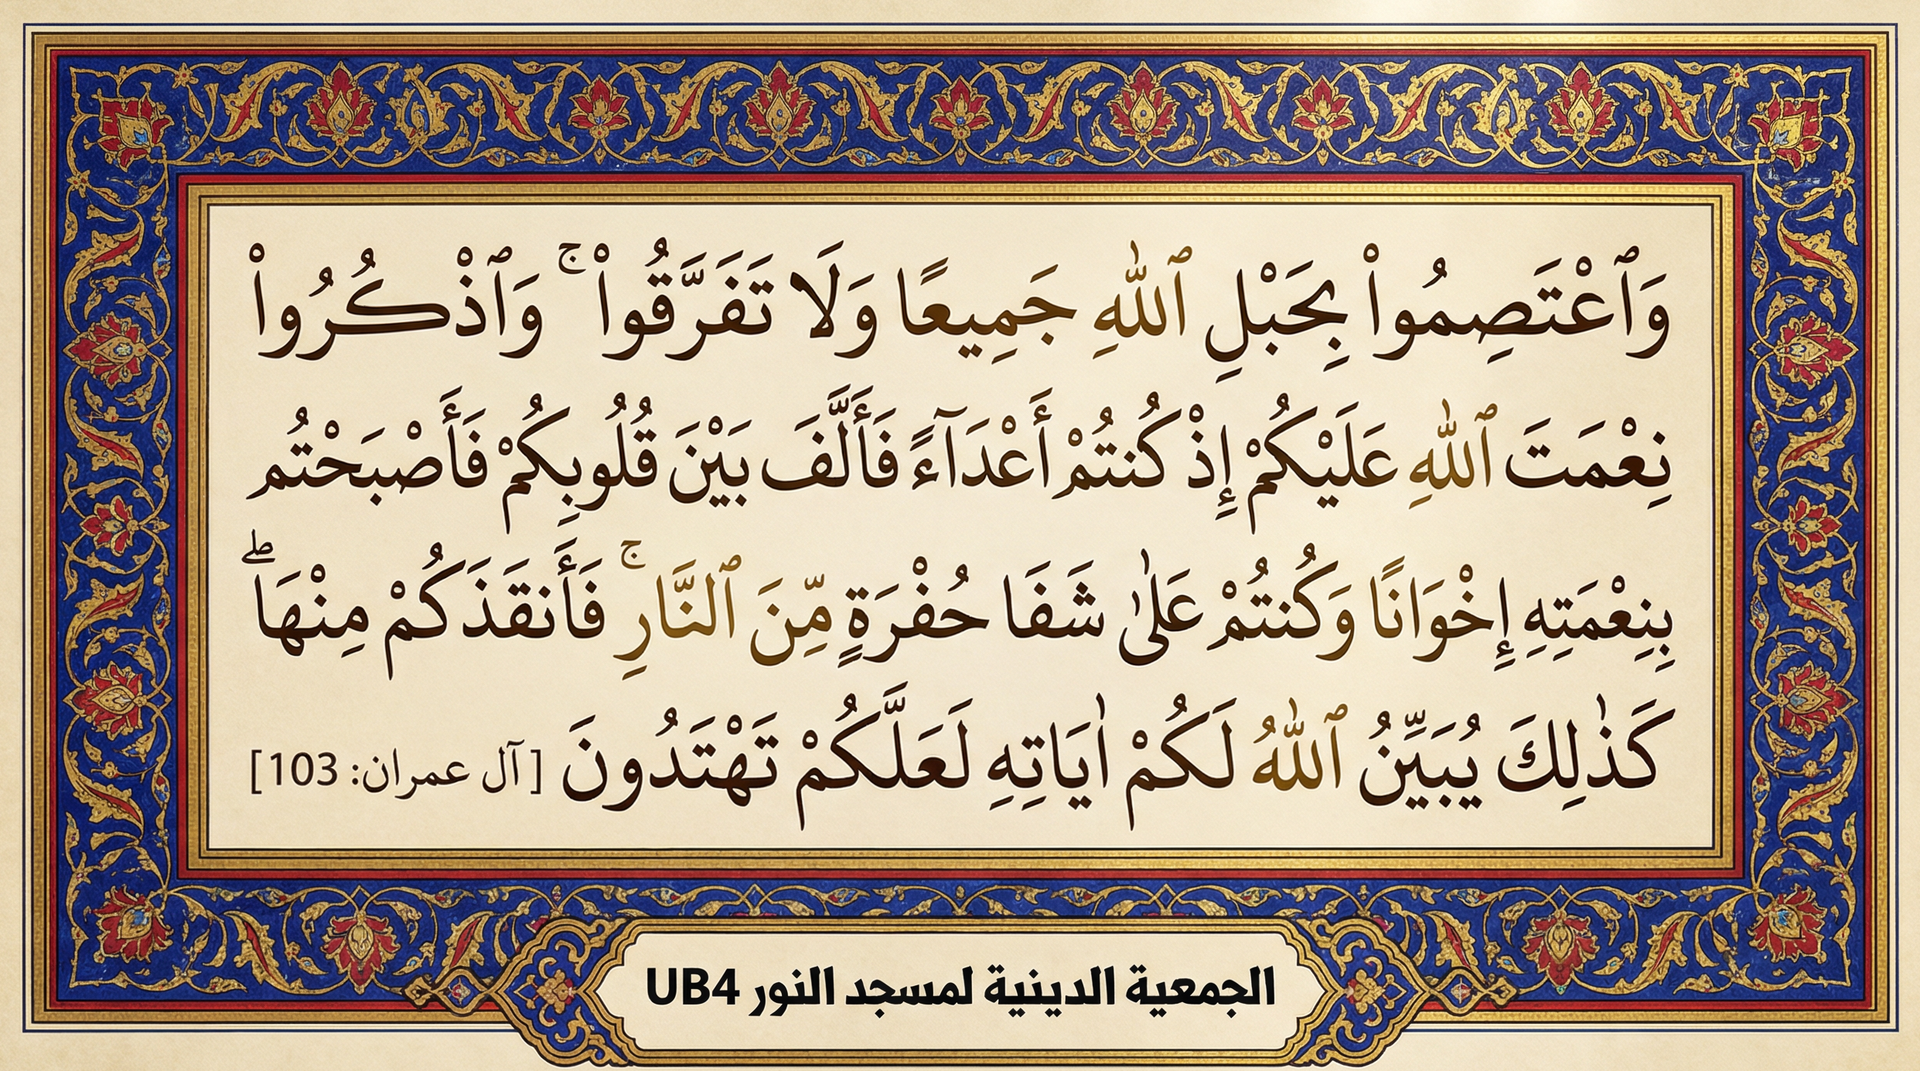 وَٱعْتَصِمُوا۟ بِحَبْلِ ٱللَّهِ جَمِيعًا وَلَا تَفَرَّقُوا۟ ۚ وَٱذْكُرُوا۟
نِعْمَتَ ٱللَّهِ عَلَيْكُمْ إِذْ كُنتُمْ أَعْدَآءً فَأَلَّفَ بَيْنَ قُلُوبِكُمْ فَأَصْبَحْتُم
بِنِعْمَتِهِ إِخْوَانًا وَكُنتُمْ عَلَىٰ شَفَا حُفْرَةٍ مِّنَ ٱلنَّارِ ۚ فَأَنقَذَكُمْ مِنْهَا ۖ
كَذَٰلِكَ يُبَيِّنُ ٱللَّهُ لَكُمْ اٰيَاتِهِ لَعَلَّكُمْ تَهْتَدُونَ [آل عمران: 103]
الجمعية الدينية لمسجد النور UB4